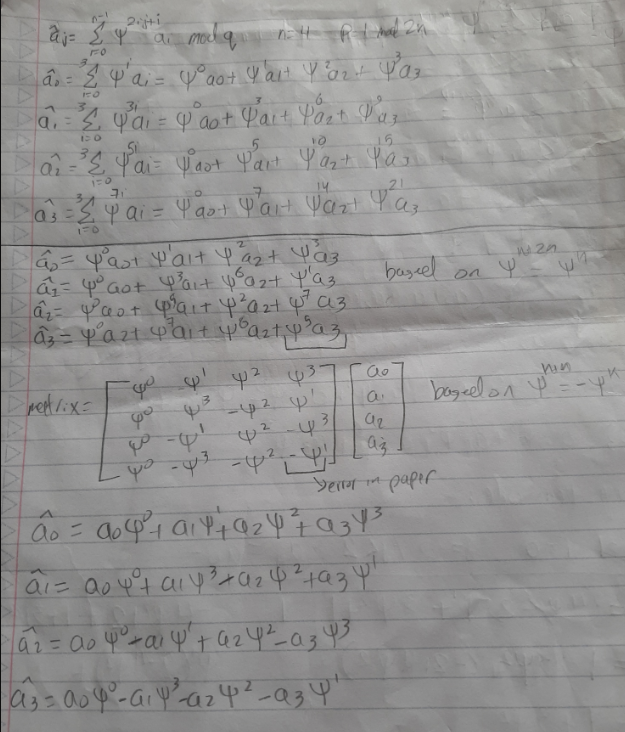 âⱼ = Σᵢ₌₀ⁿ⁻¹ ψ²ⁱʲ⁺ⁱ aᵢ mod q n=4 mod 2n
â₀ = Σᵢ₌₀³ ψⁱ aᵢ = ψ⁰a₀ + ψ¹a₁ + ψ²a₂ + ψ³a₃
â₁ = Σᵢ₌₀³ ψ³ⁱaᵢ = ψ⁰a₀ + ψ³a₁ + ψ⁶a₂ + ψ⁹a₃
â₂ = Σᵢ₌₀³ ψ⁵ⁱaᵢ = ψ⁰a₀ + ψ⁵a₁ + ψ¹⁰a₂ + ψ¹⁵a₃
â₃ = Σᵢ₌₀³ ψ⁷ⁱaᵢ = ψ⁰a₀ + ψ⁷a₁ + ψ¹⁴a₂ + ψ²¹a₃
â₀ = ψ⁰a₀ + ψ¹a₁ + ψ²a₂ + ψ³a₃
â₁ = ψ⁰a₀ + ψ³a₁ + ψ⁶a₂ + ψ¹a₃ based on ψⁿ⁺²ⁿ = ψⁿ
â₂ = ψ⁰a₀ + ψ⁵a₁ + ψ²a₂ + ψ⁷a₃
â₃ = ψ⁰a₂ + ψ⁷a₁ + ψ⁶a₂ + ψ⁵a₃
ψ⁰ ψ¹ ψ² ψ³ a₀
matrix = ψ⁰ ψ³ -ψ² ψ¹ a₁ based on ψⁿ⁺ⁿ = -ψⁿ
ψ⁰ -ψ¹ ψ² -ψ³ a₂
ψ⁰ -ψ³ -ψ² -ψ¹ a₃
error in paper
â₀ = a₀ψ⁰ + a₁ψ¹ + a₂ψ² + a₃ψ³
â₁ = a₀ψ⁰ + a₁ψ³ + a₂ψ² + a₃ψ¹
â₂ = a₀ψ⁰ - a₁ψ¹ + a₂ψ² - a₃ψ³
â₃ = a₀ψ⁰ - a₁ψ³ - a₂ψ² - a₃ψ¹